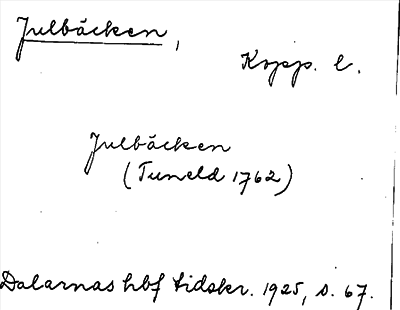 Julbäcken,
Kopp. l.
Julbäcken
(Tuneld 1762)
Dalarnas hbf tidskr. 1925, s. 67.